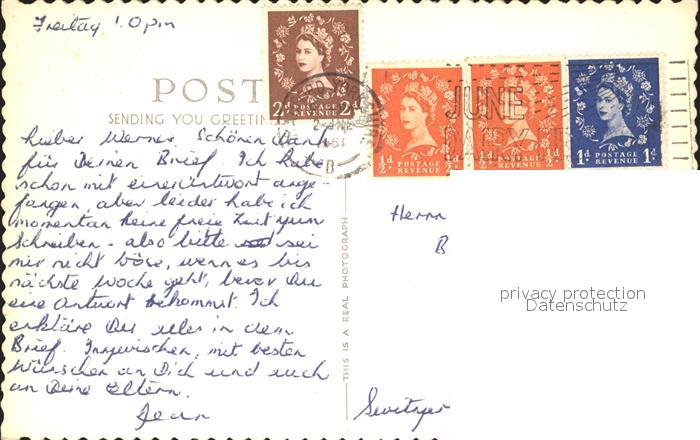 Freitag 1.0 pm
POST
SENDING YOU GREETIN
2d 2d
POSTAGE REVENUE
½d ½d
POSTAGE REVENUE
½d ½d
POSTAGE REVENUE
1d 1d
POSTAGE REVENUE
JUNE
DAIRY FE
lieber Werner Schönen Dank
für Deinen Brief. Ich habe
schon mit einer Antwort ange-
fangen, aber leider habe ich
momentan keine freie Zeit zum
Schreiben - also bitte sei
mir nicht böse, wenn es bis
nächste Woche geht, bevor Du
eine Antwort bekommst. Ich
erkläre Dir alles in dem
Brief. Inzwischen, mit besten
Wünschen an Dich und auch
an Deine Eltern.
Jean
THIS IS A REAL PHOTOGRAPH
Herrn
B
privacy protection
Datenschutz